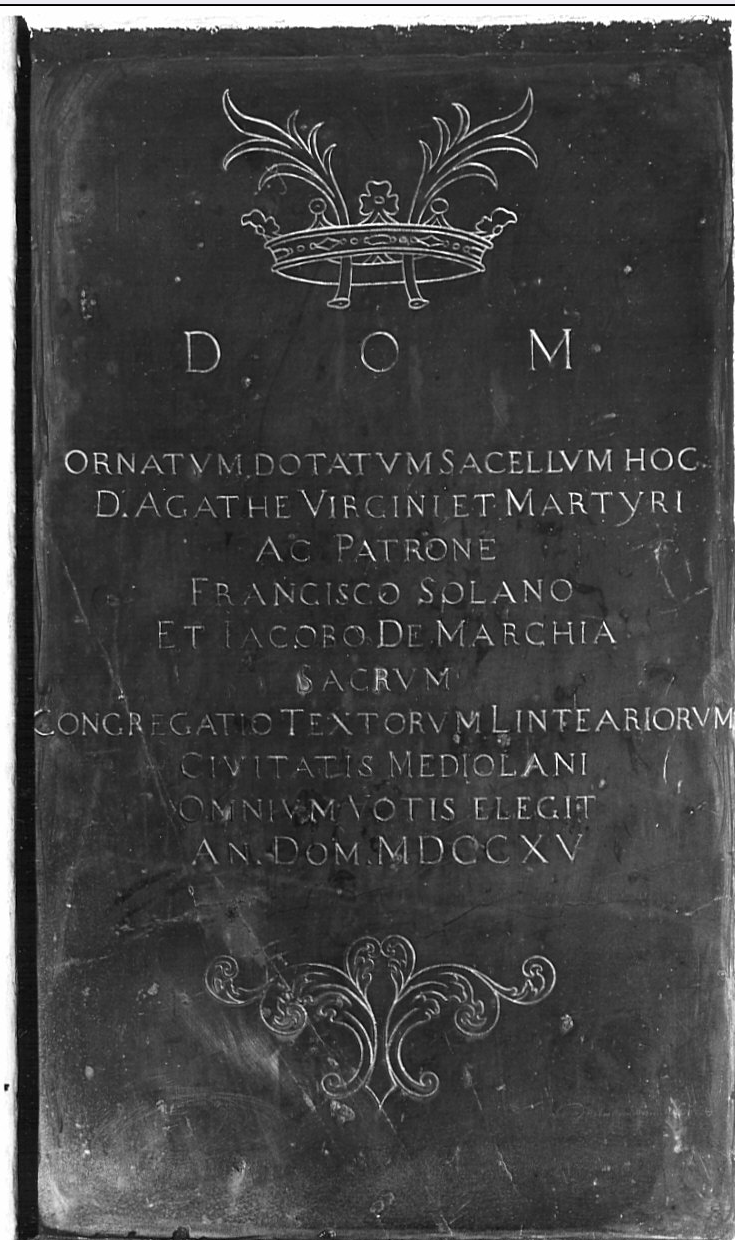 D O M
ORNATVM DOTATVM SACELLVM HOC
D. AGATHE VIRGINI ET MARTYRI
AC PATRONE
FRANCISCO SOLANO
ET IACOBO DE MARCHIA
SACRVM
CONGREGATIO TEXTORVM LINTEARIORVM
CIVITATIS MEDIOLANI
OMNIVM VOTIS ELEGIT
AN. DOM. MDCCXV